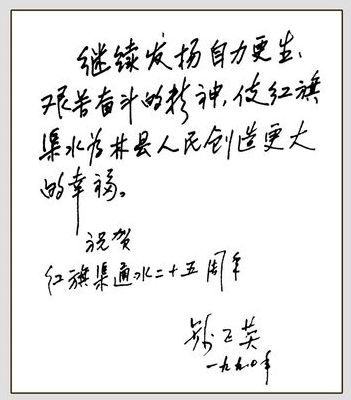 继续发扬自力更生、
艰苦奋斗的精神,使红旗
渠水为林县人民创造更大
的幸福。
祝贺
红旗渠通水二十五周年
钱正英
一九九〇年